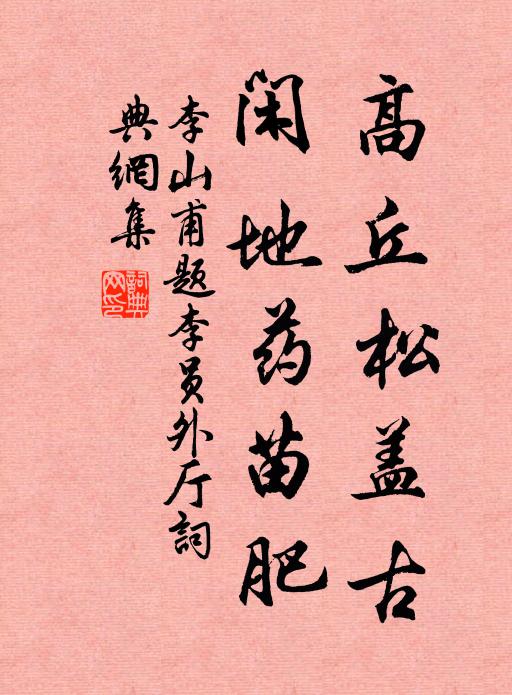 高丘松盖古
闲地药苗肥
李山甫题李员外厅詞
典網集
詞典
网印